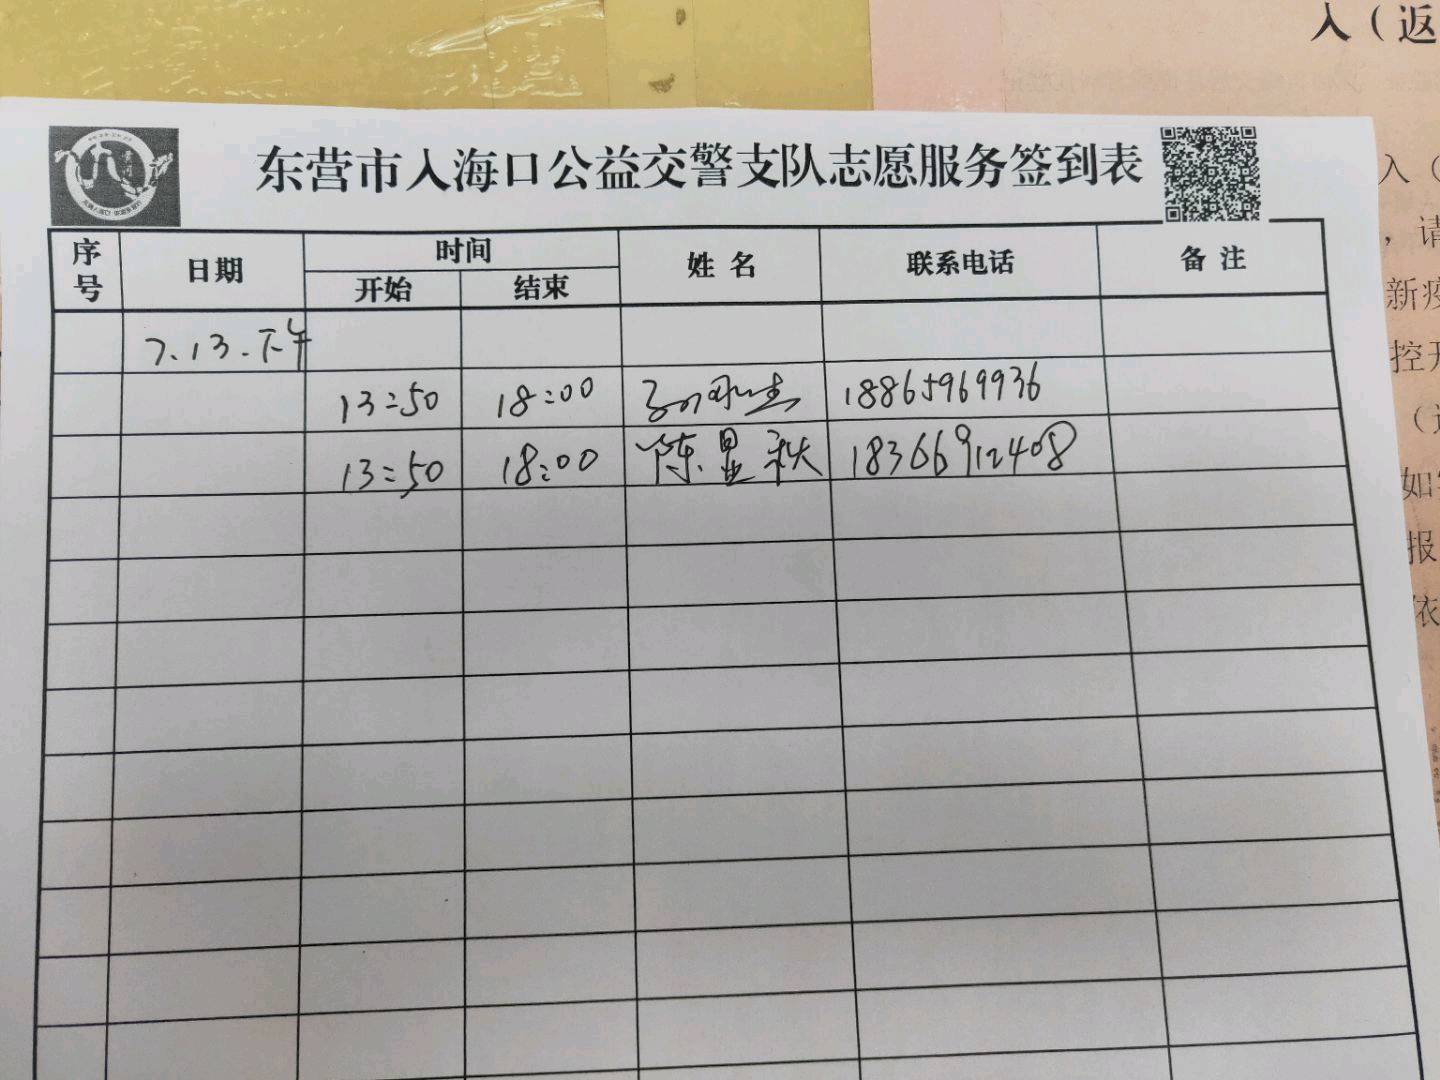 入（返
东营市入海口公益交警支队志愿服务签到表
入（
，请
序号 日期 时间 姓名 联系电话 备注
开始 结束
新疫
7.13.下午
控开
13:50 18:00 18865969936
13:50 18:00 陈显秩 18366912408
如
报
依